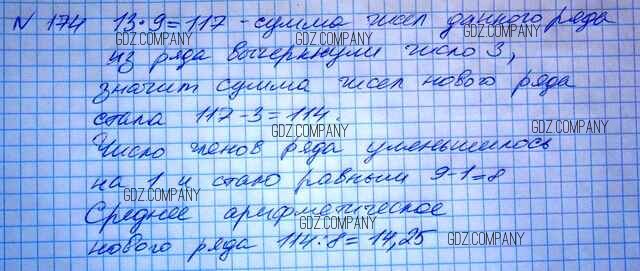 N 174 13·9=117 - сумма чисел данного ряда
GDZ.COMPANY GDZ.COMPANY
из ряда вычеркнули число 3,
GDZ.COMPANY GDZ.COMPANY
значит сумма чисел нового ряда
GDZ.COMPANY
стала 117-3=114.
GDZ.COMPANY GDZ.COMPANY
Число членов ряда уменьшилось
на 1 и стало равным 9-1=8
GDZ.COMPANY GDZ.COMPANY
Среднее арифметическое
GDZ.COMPANY GDZ.COMPANY
нового ряда 114:8=14,25 GDZ.COMPANY